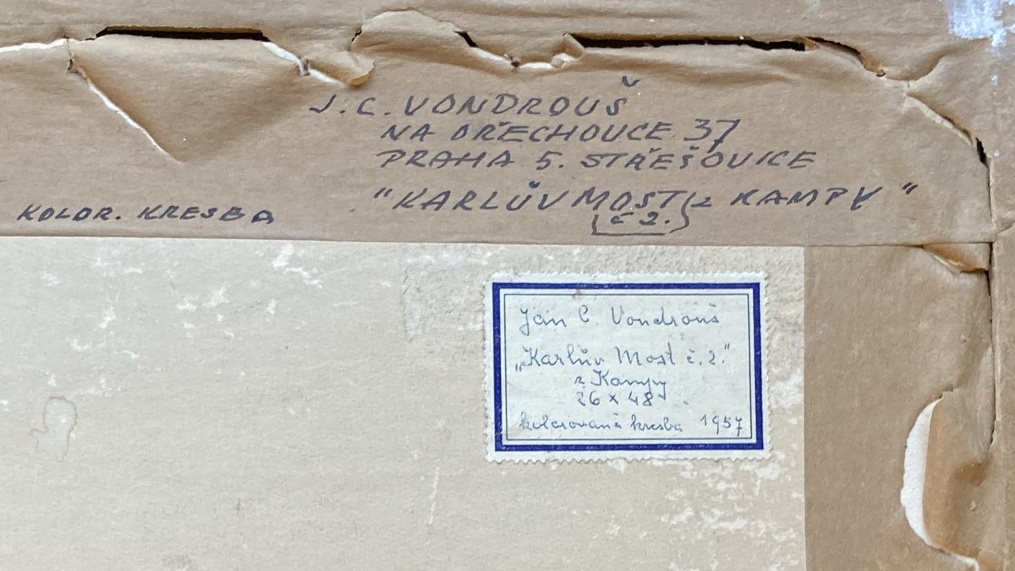 J. C. VONDROUŠ
NA OŘECHOVCE 37
PRAHA 5. STŘEŠOVICE
"KARLŮV MOST z KAMPY"
č 2.
KOLOR. KRESBA
Jan C. Vondrouš
„Karlův Most č. 2."
z Kampy
26 x 48
kolorovaná kresba 1957